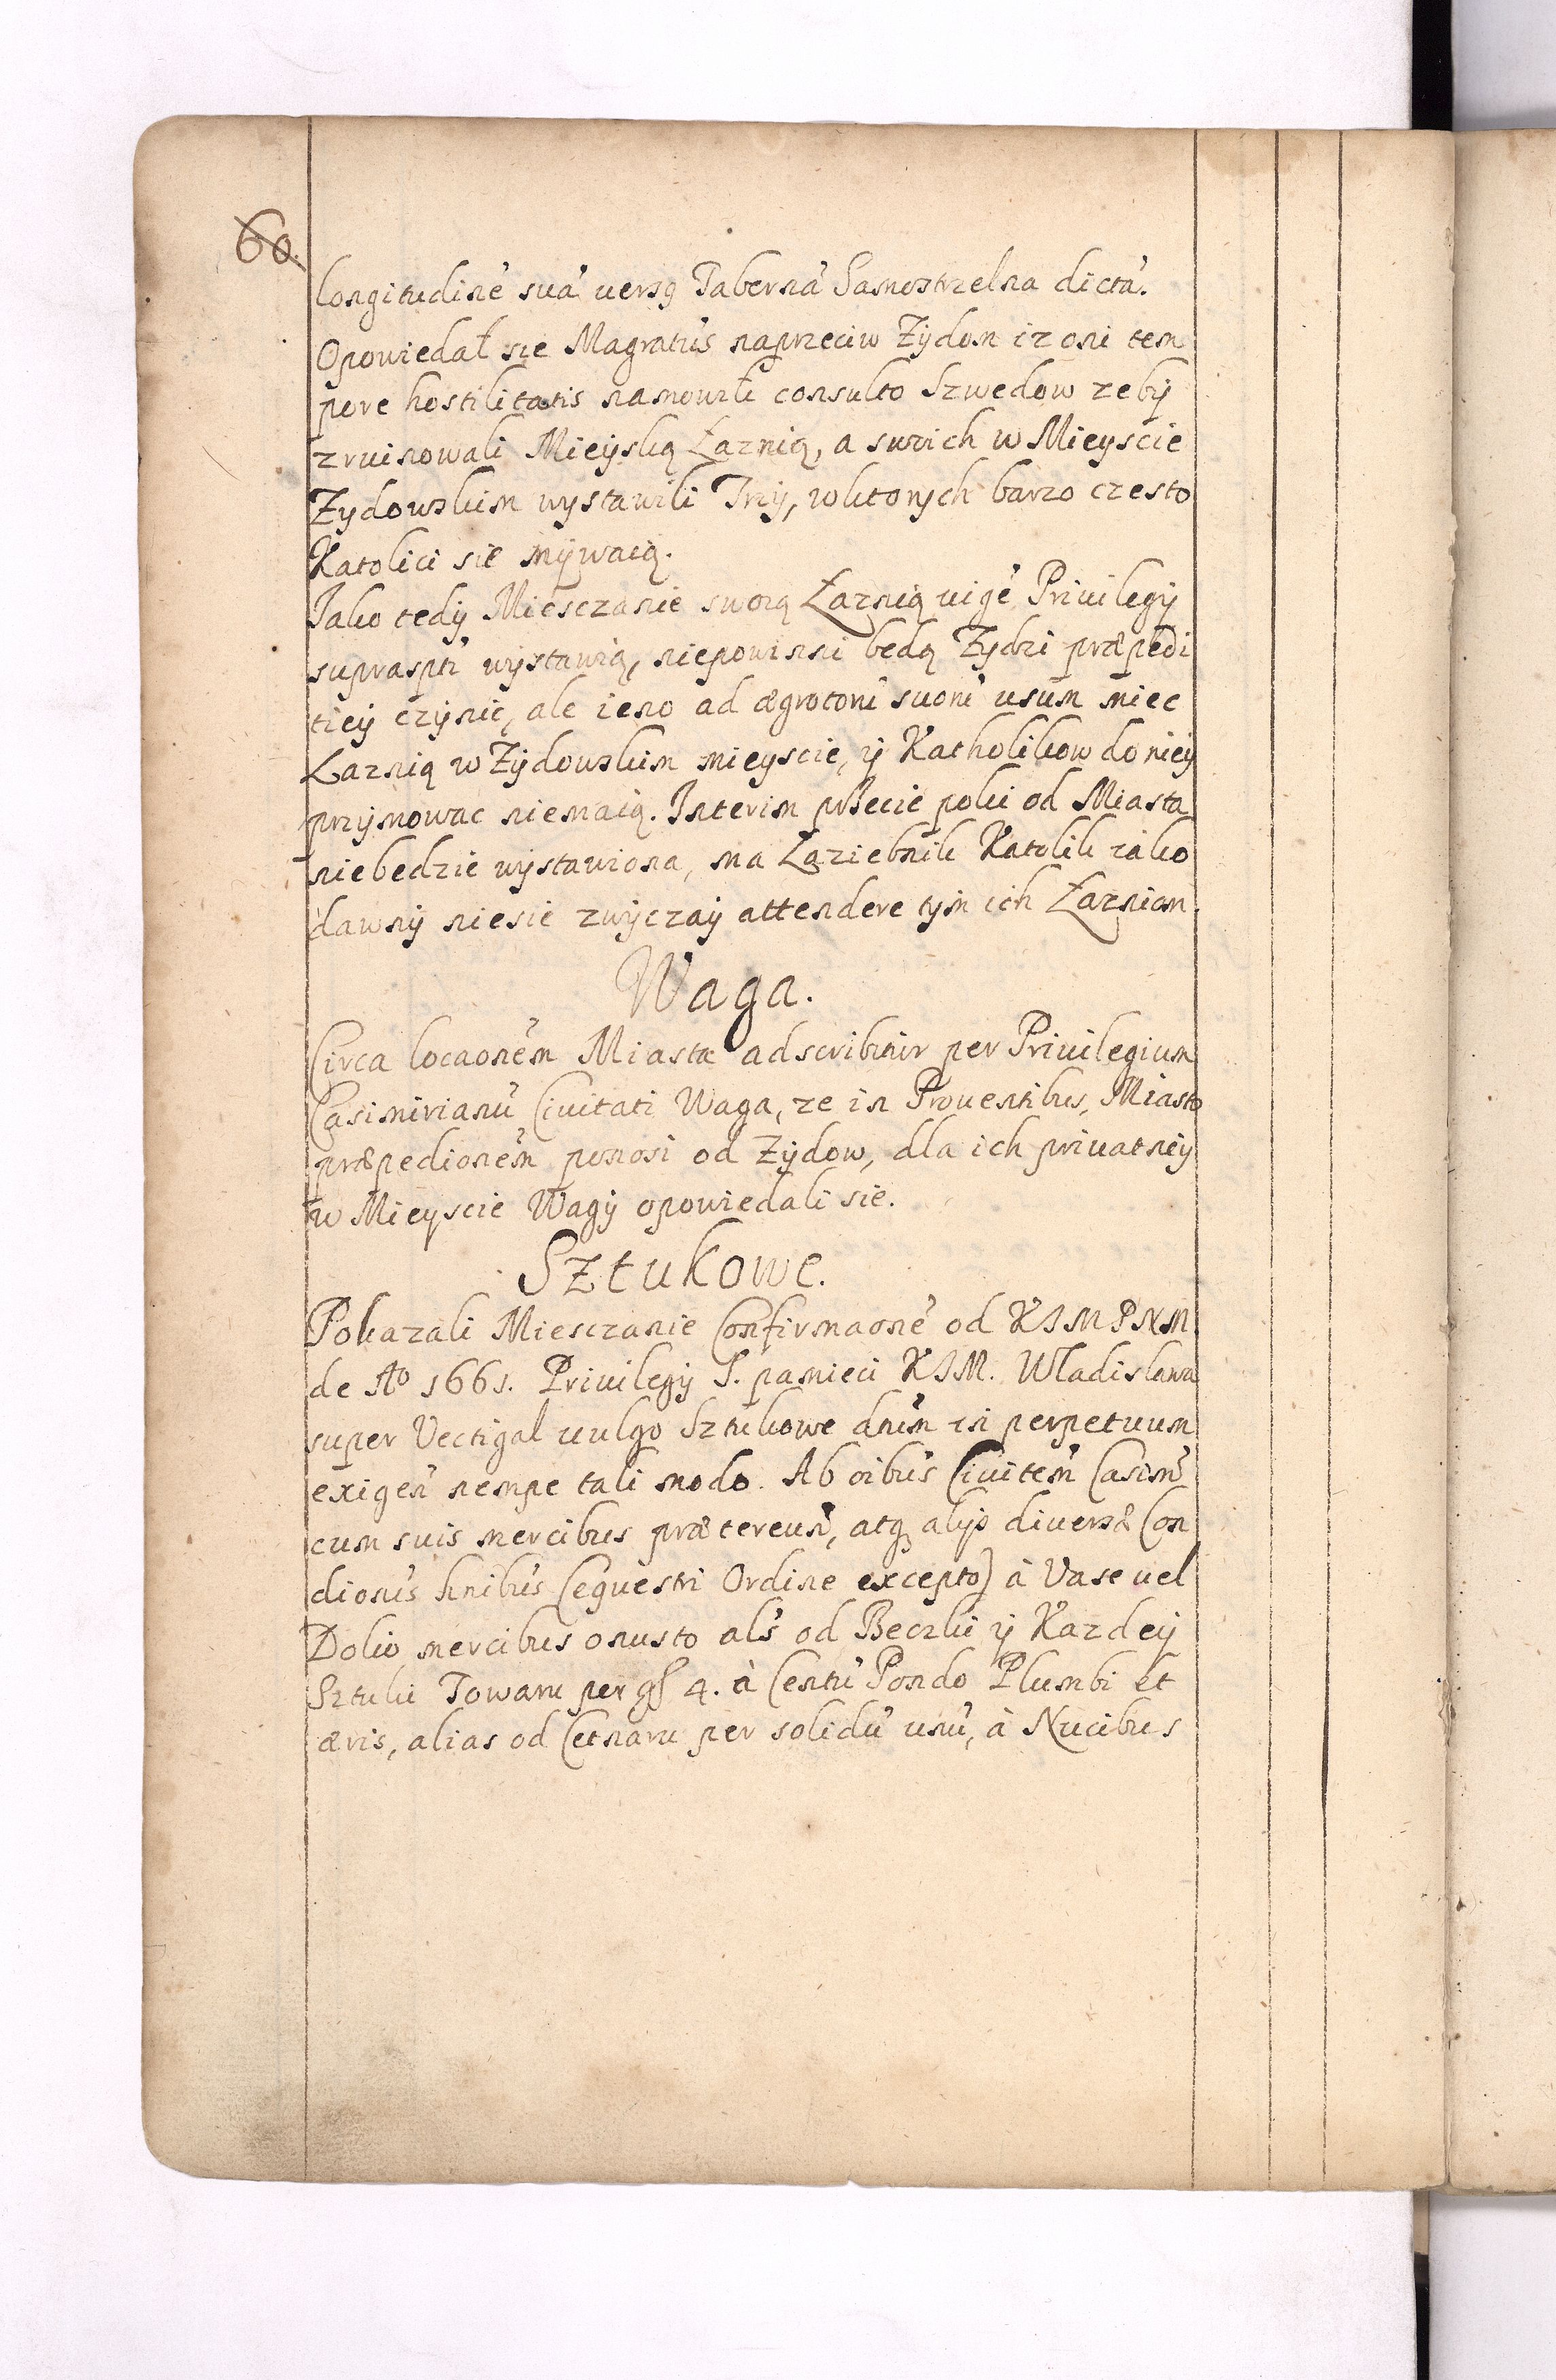 60.
longitudinē suā versꝰ Tabernā Samostrzelna dictā.
Opowiedał sie Magratūs naprzeciw Zÿdom iz oni tem
pore hostilitatis namowili consulto Szwedow zebÿ
zruinowali Mieÿską Łaznią, a swich w Mieyscie
Zydowskim wystawili Trzÿ, w ktorych barzo czesto
Katolici sie mÿwaią.
Jako tedÿ Miesczanie swoią Łaznią vigē Privilegÿ
supraspti wÿstawią, niepowinni będą Zÿdzi præpedi
tieÿ czÿnic, ale ieno ad ægrotorū suorū usum miec
Łaznią w Zÿdowskim mieyscie, ÿ Katholikow do nieÿ
przÿmowac niemaią. Interim przecie poki od Miasta
niebedzie wÿstawiona, ma Łaziebnik Katolik iako
dawnÿ niesie zwÿczaÿ attendere tÿm ich Łazniom.
Waga.
Circa locaonēm Miastæ adscribitur per Privilegium
Casimirianū Civitati Waga, ze in Proventibus, Miasto
præpedionēm ponosi od Zÿdow, dla ich privatneÿ
w Mieyscie Wagÿ opowiedali sie.
Sztukowe.
Pokazali Miesczanie Confirmaonē od KJMPNM.
de Aº 1661. Privilegÿ S. pamieci KJM. Władisława
super Vectigal vulgo Sztukowe dnūm in perpetuum
exigen̄ nempe tali modo. Ab oībus Civitem̄ Casim̄
cum suis mercibus prætereun̄, atq̨ alÿs diversæ Con
dionis hnibus (equestri Ordine excepto) à Vase vel
Dolio mercibus onusto als̄ od Beczki ÿ Kazdeÿ
Sztuki Towaru per gſ 4. à Centū Pondo Plumbi et
æris, alias od Cetnaru per solidū unū, à Nucibus